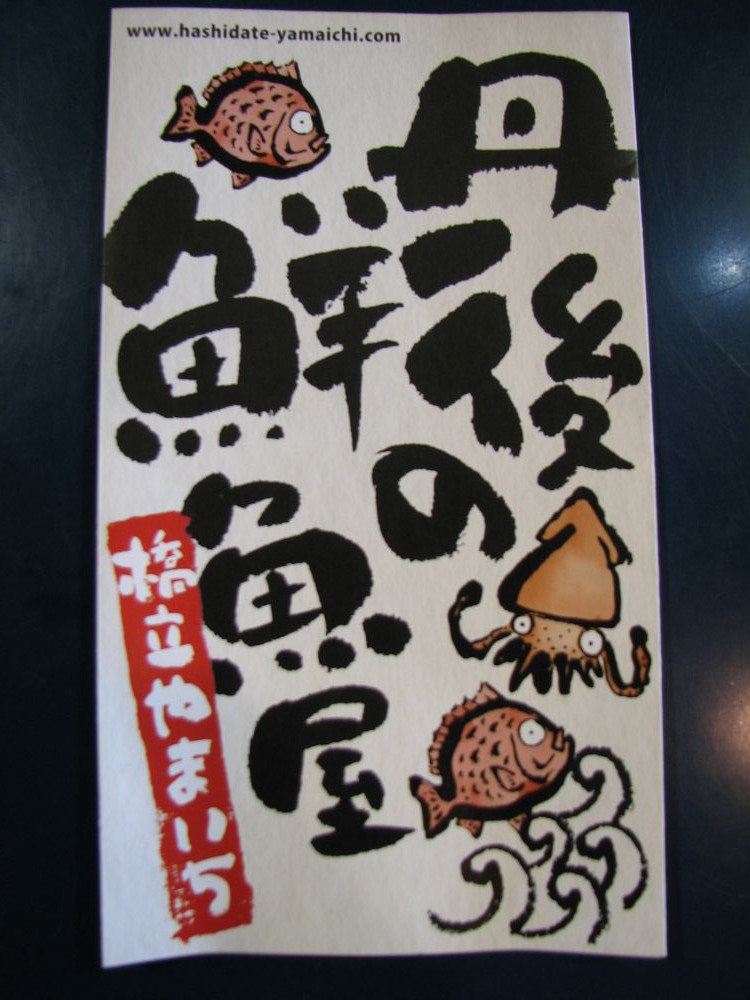 www.hashidate-yamaichi.com
丹後の
鮮魚屋
橋立やまいち